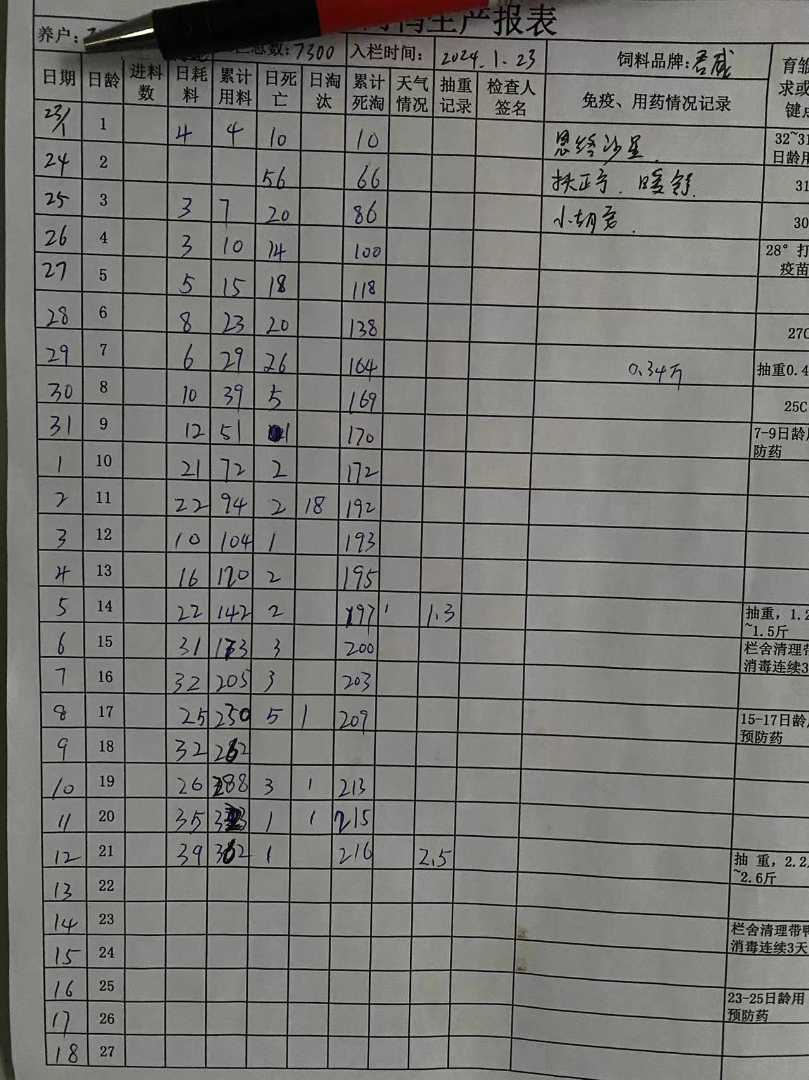 生产报表
养户:
总数:7300 入栏时间: 2024.1.23 饲料品牌:君威
日期 日龄 进料数 日耗料 累计用料 日死亡 日淘汰 累计死淘 天气情况 抽重记录 检查人签名 免疫、用药情况记录 育雏
23/1 1 4 4 10 10 恩给沙星. 32~31
日龄用
24 2 56 66 扶正宁. 31
25 3 3 7 20 86 30
26 4 3 10 14 100 28° 打
疫苗
27 5 5 15 18 118
28 6 8 23 20 138 27C
29 7 6 29 26 164 0.34斤 抽重0.4
30 8 10 39 5 169 25C
31 9 12 51 1 170 7-9日龄用
防药
1 10 21 72 2 172
2 11 22 94 2 18 192
3 12 10 104 1 193
4 13 16 120 2 195
5 14 22 142 2 197 1.3 抽重, 1.2
~1.5斤
6 15 31 173 3 200 栏舍清理带
消毒连续3
7 16 32 205 3 203
8 17 25 230 5 1 209 15-17日龄用
预防药
9 18 32 262
10 19 26 288 3 1 213
11 20 35 323 1 1 215
12 21 39 362 1 216 2.5 抽 重, 2.2
~2.6斤
13 22
14 23 栏舍清理带鸭
消毒连续3天
15 24
16 25 23-25日龄用
预防药
17 26
18 27